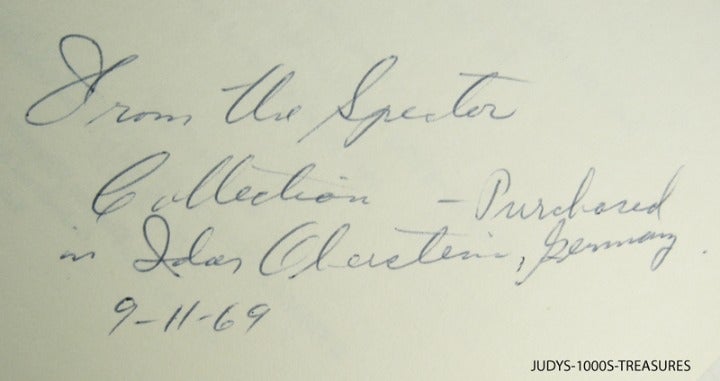 From the Spector
Collection - Purchased
in Idar Oberstein, Germany.
9-11-69
JUDYS-1000S-TREASURES